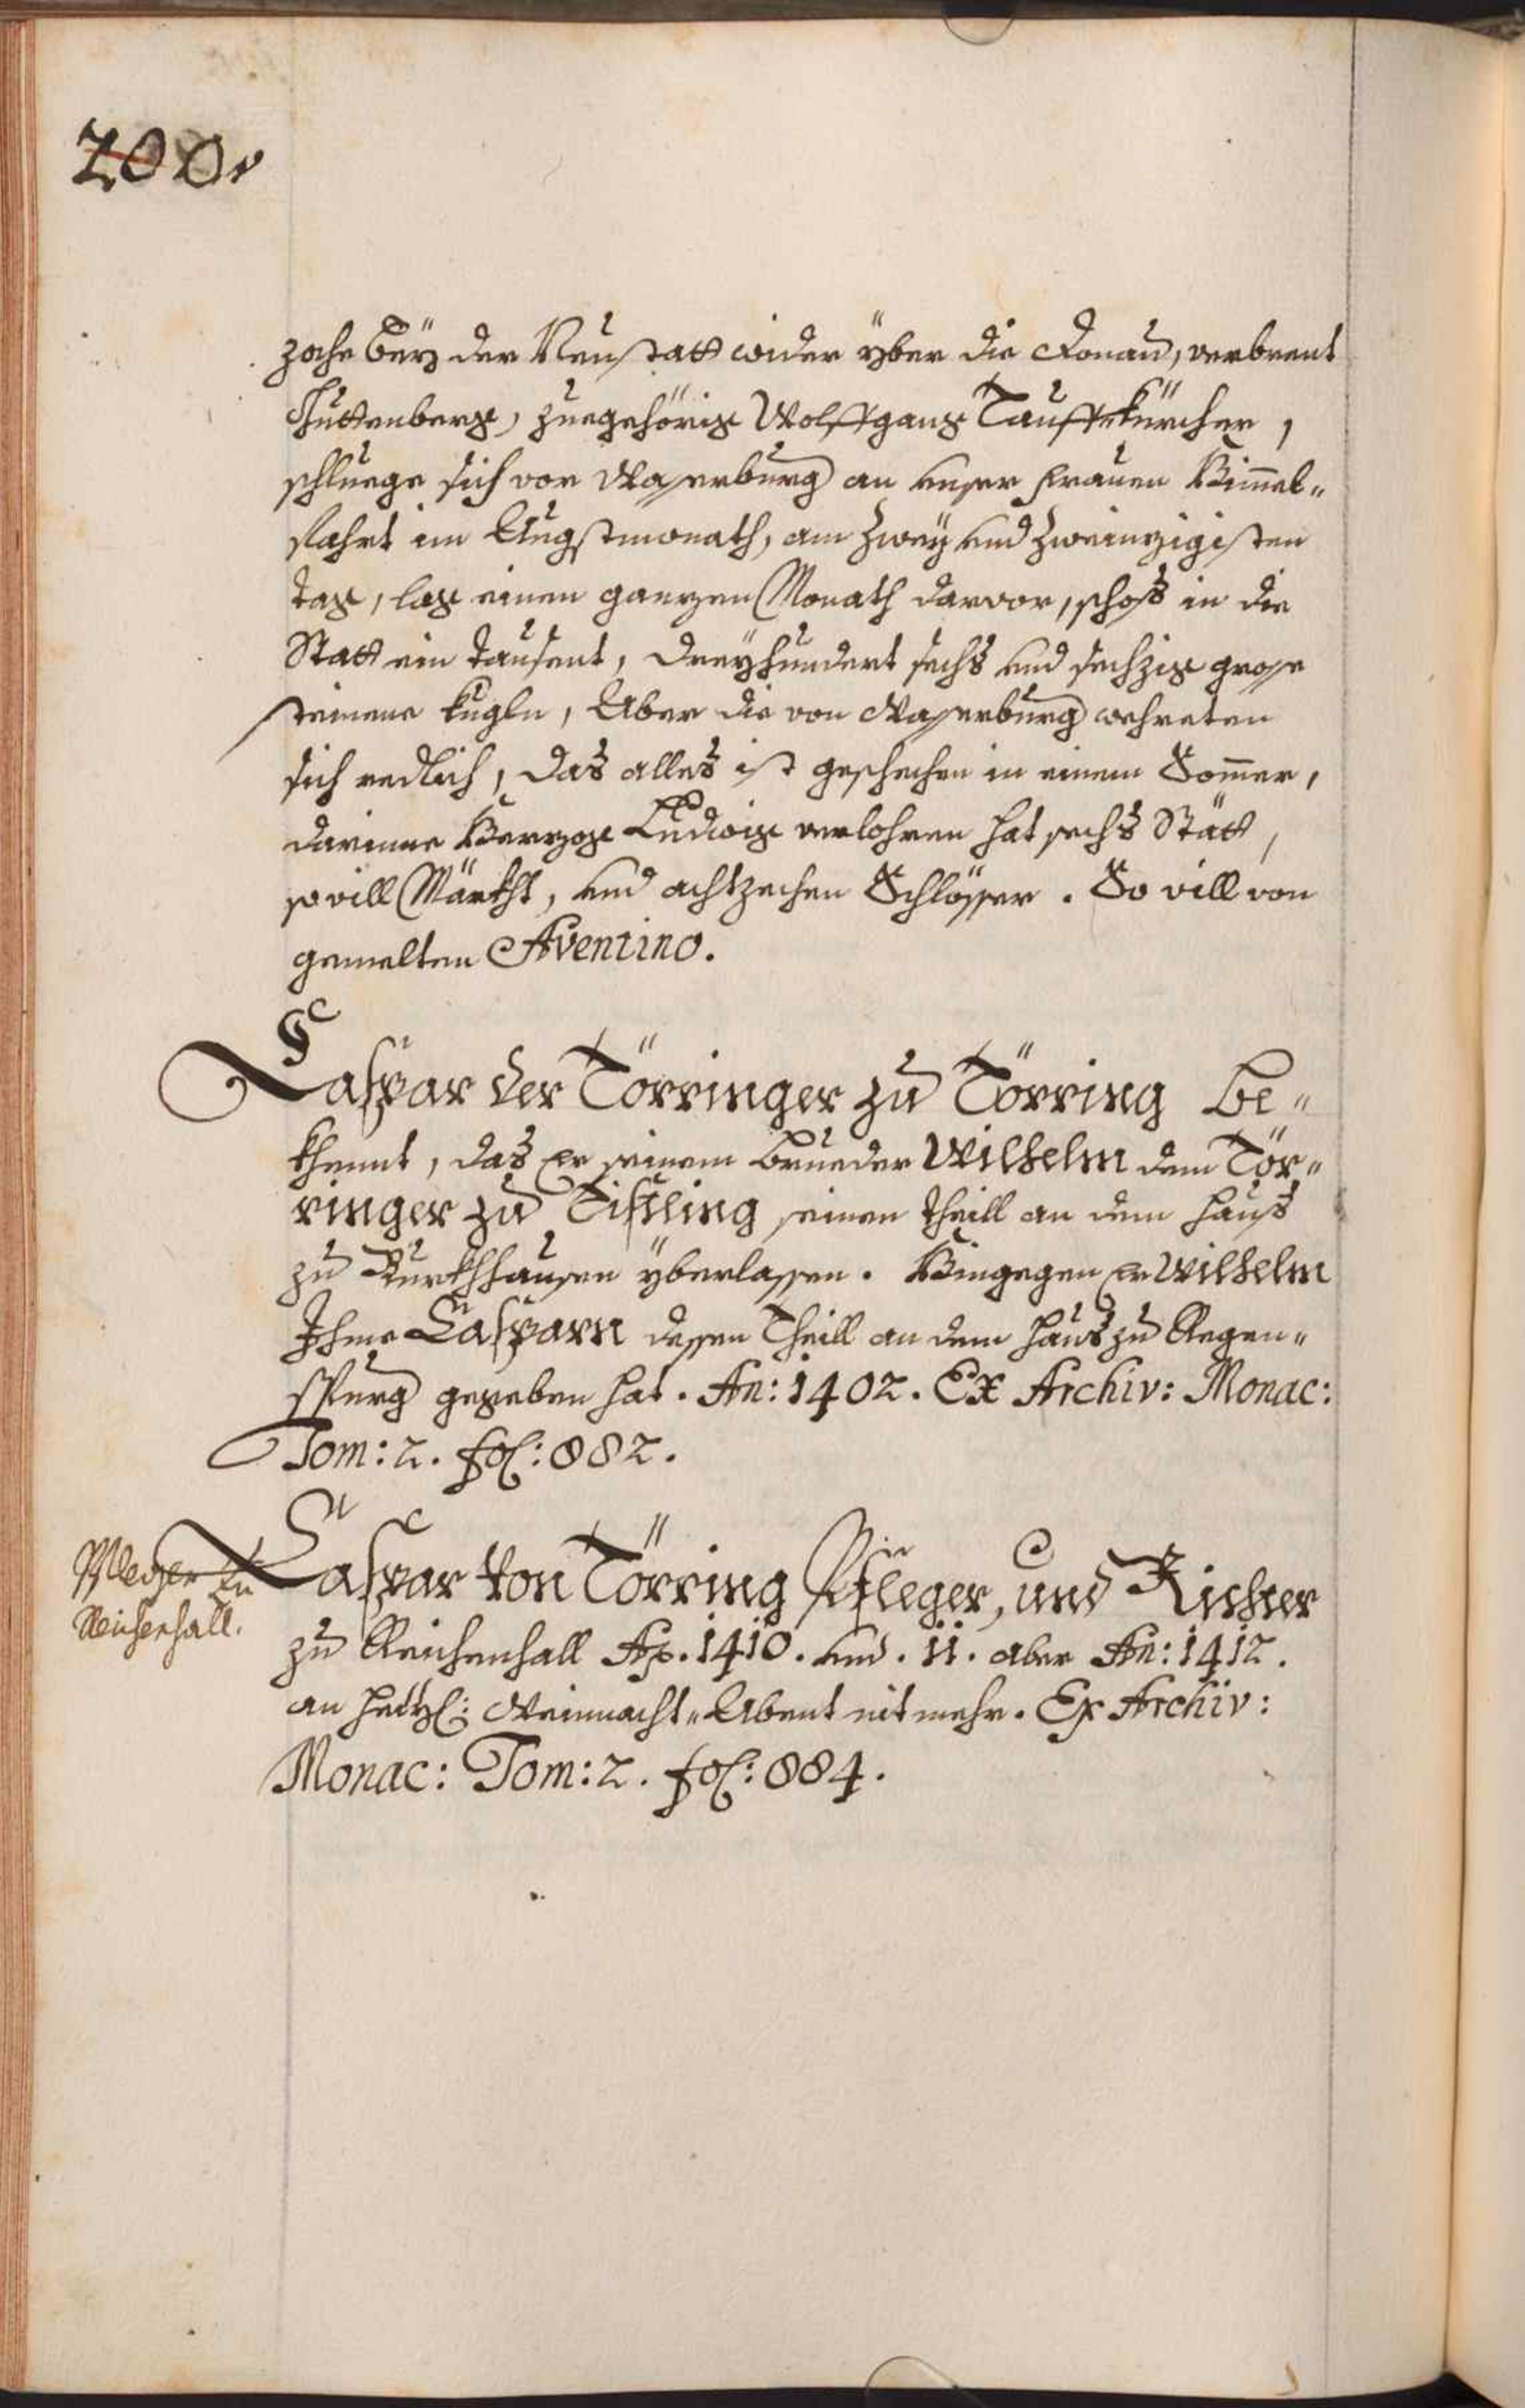 200v
zoche beÿ der Neustatt wider ÿber die Donau, verbrent
Guttenberg, zuegehörig Wolffgang Tauffkürcher,
schluege sich vor Wasserburg an unser Frauen Himel„
fahrt im Augstmonath, am zweÿ und zweinzigisten
tag, lag einen ganzen Monath darvor, schoß in die
Statt ein tausent, dreÿhundert sechs und sechzig grosse
steinene kugln, Aber die von Wasserburg wehreten
sich redlich, Das alles ist geschechen in einem Sommer,
darinne Herzog Ludwig verlohren hat sechs Stätt,
so vill Märckht, und achtzechen Schlösser. So vill von
gemelten Aventino.
Caspar der Törringer zu Törring be„
khennt, das er seinem brueder Wilhelm dem Tör„
ringer zu Tißling seinen theill an dem hauß
zu Burckhhausen ÿberlassen. Hingegen er Wilhelm
Ihme Casparn dessen Theill an dem hauß zu Regen„
spurg gegeben hat. An: 1402. Ex Archiv: Monac:
Tom: 2. fol: 882.
Pfleger zu
Reichenhall.
Caspar von Törring Pfleger, und Richter
zu Reichenhall Ao. 1410. und. 11. aber An: 1412.
an heyl: Weinnacht„Abent nit mehr. Ex Archiv:
Monac: Tom: 2. fol: 884.